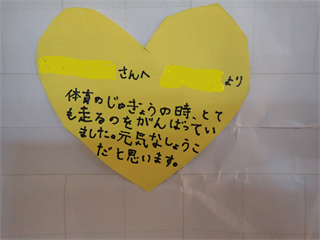 さんへ より
体育のじゅぎょうの時、とて
も走るのをがんばってい
ました。元気なしょうこ
だと思います。